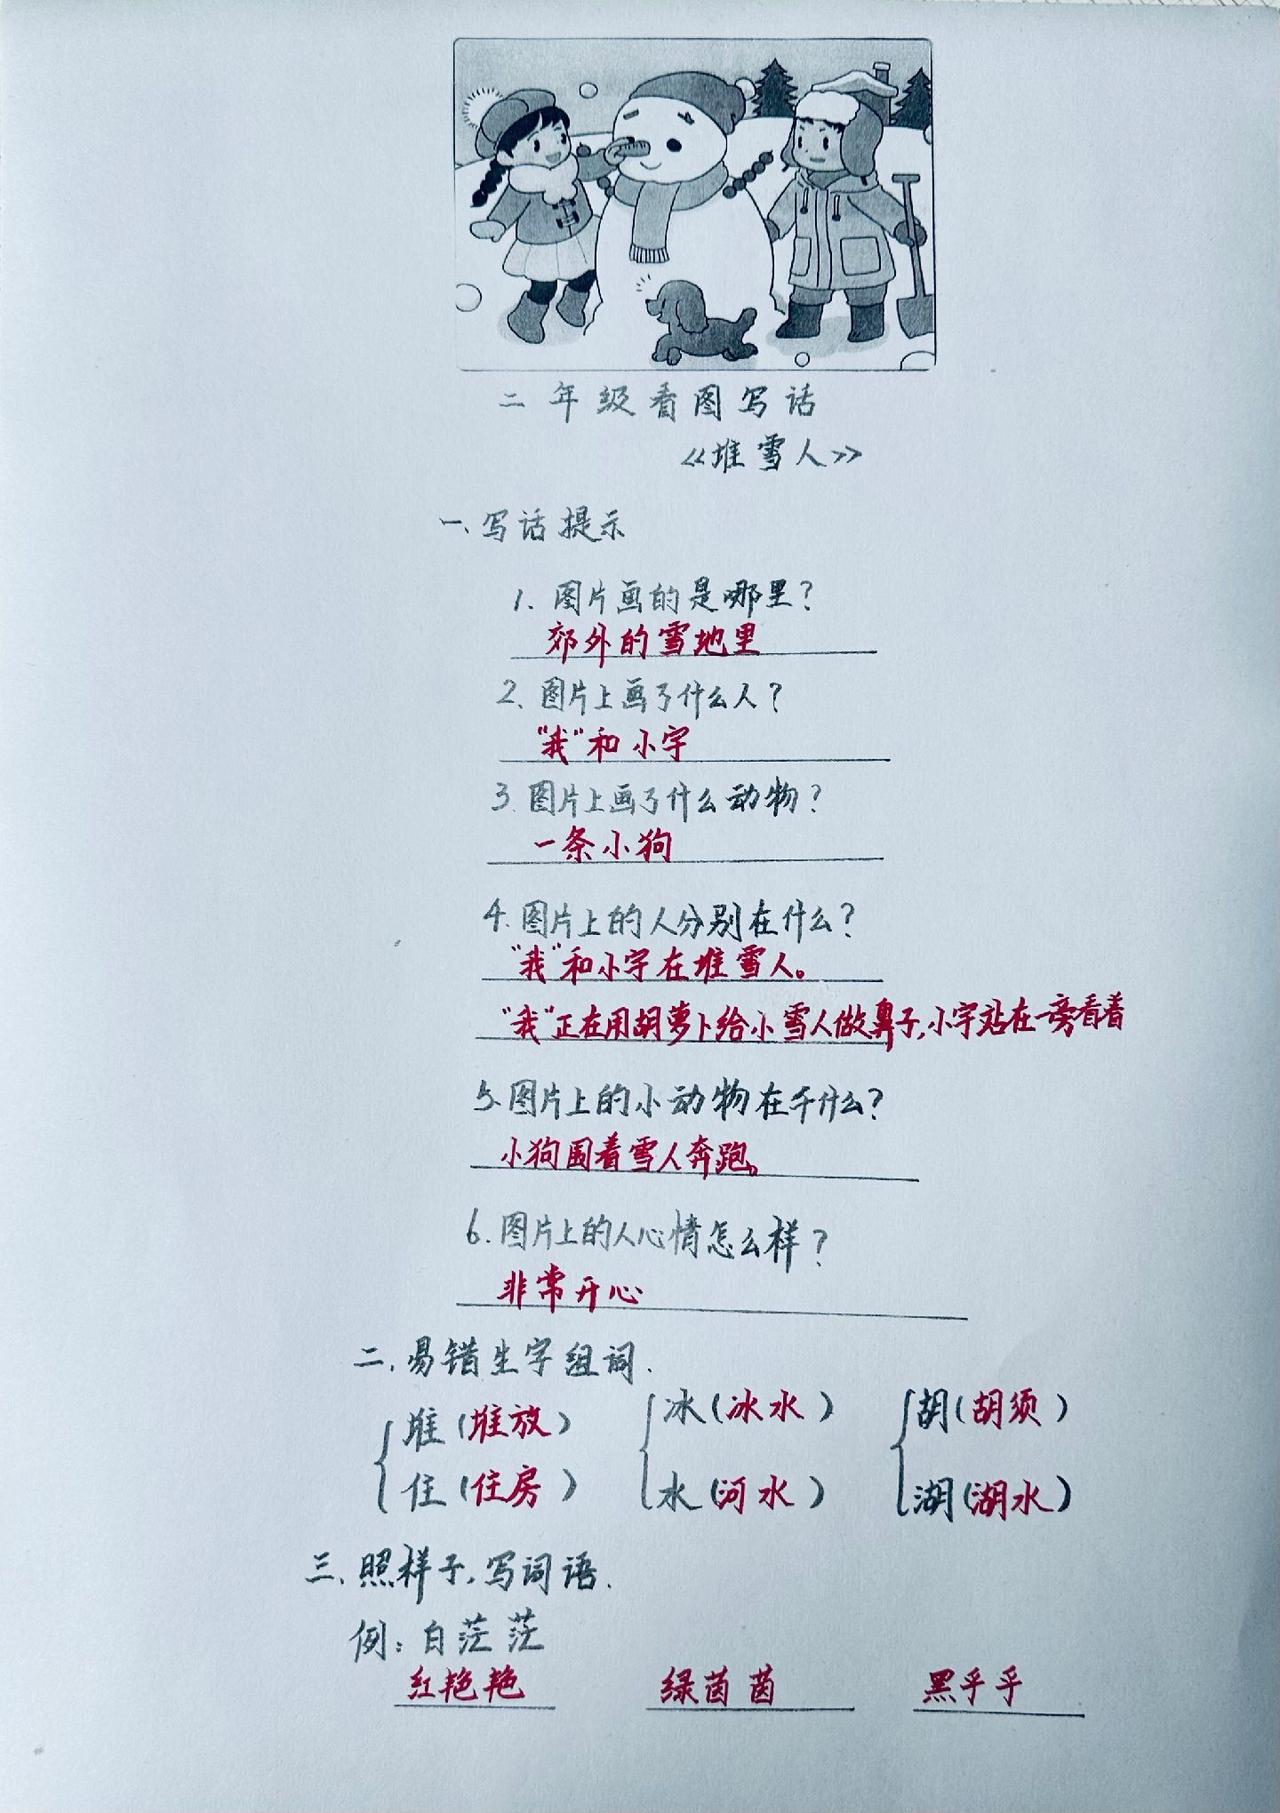 二年级看图写话
《堆雪人》
一、写话提示
1. 图片画的是哪里?
郊外的雪地里
2. 图片上画了什么人?
"我"和小宇
3. 图片上画了什么动物?
一条小狗
4. 图片上的人分别在什么?
"我"和小宇在堆雪人。
"我"正在用胡萝卜给小雪人做鼻子,小宇站在一旁看着
5. 图片上的小动物在干什么?
小狗围着雪人奔跑。
6. 图片上的人心情怎么样?
非常开心
二、易错生字组词.
堆(堆放) 冰(冰水) 胡(胡须)
住(住房) 水(河水) 湖(湖水)
三、照样子,写词语.
例:白茫茫
红艳艳 绿茵茵 黑乎乎